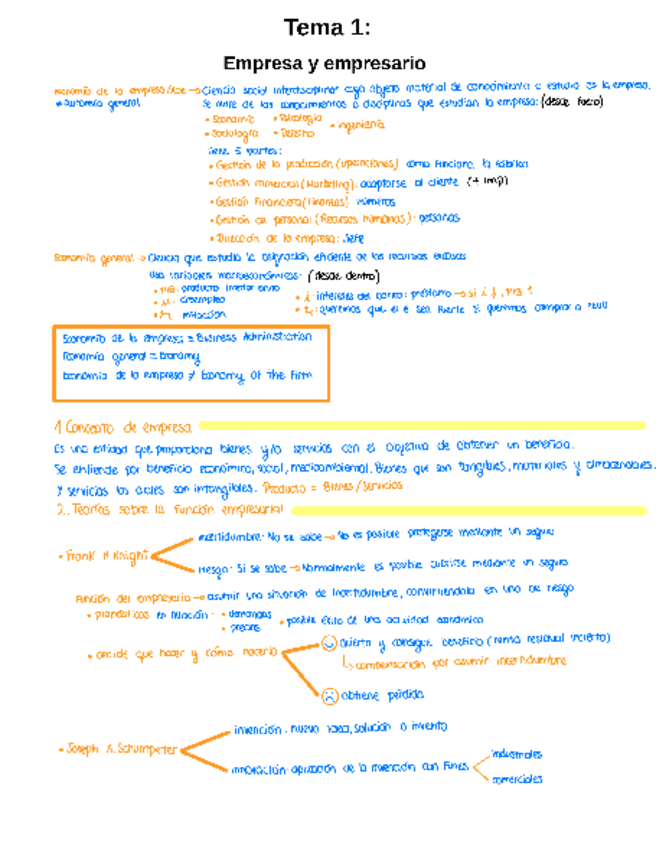 Tema 1:
Empresa y empresario
Economía de la empresa → Ciencia social interdisciplinar cuyo objeto material de conocimiento o estudio es la empresa.
* Economía general Se nutre de los conocimientos o disciplinas que estudian la empresa: (desde fuera)
• Economía • Psicología • Ingeniería
• Sociología • Derecho
Tiene 5 partes:
• Gestión de la producción (operaciones) cómo funciona la fábrica
• Gestión comercial (Marketing): adaptarse al cliente (+ imp)
• Gestión Financiera (Finanzas) números
• Gestión de personal (Recursos humanos): personas
• Dirección de la empresa: Jefe
Economía general → Ciencia que estudia la asignación eficiente de los recursos escasos
Usa variables macroeconómicas: (desde dentro)
• PIB: producto interior bruto • i: intereses del banco: préstamo → si i ↓, PIB ↑
• desempleo • queremos que el € sea fuerte si queremos comprar a
• inflación
Economía de la empresa = Business Administration
Economía general = Economy
Economía de la empresa ≠ Economy Of The Firm
1 Concepto de empresa
Es una entidad que proporciona bienes y/o servicios con el objetivo de obtener un beneficio.
Se entiende por beneficio económico, social, medioambiental. Bienes que son tangibles, materiales y almacenables.
Y servicios los cuales son intangibles. Producto = Bienes/Servicios
2. Teorías sobre la función empresarial
• Frank H Knight
incertidumbre: No se sabe → No es posible protegerse mediante un seguro
riesgo: Si se sabe → Normalmente es posible cubrirse mediante un seguro
Función del empresario → asumir una situación de incertidumbre, convirtiéndola en una de riesgo
• pronósticos en relación: • demandas • posible éxito de una actividad económica
• precios
• decide que hacer y cómo hacerlo
acierta y consigue beneficio (renta residual incierta)
↳ compensación por asumir incertidumbre
obtiene pérdida
• Joseph A. Schumpeter
invención: nueva idea, solución o invento
innovación: aplicación de la invención con fines
industriales
comerciales